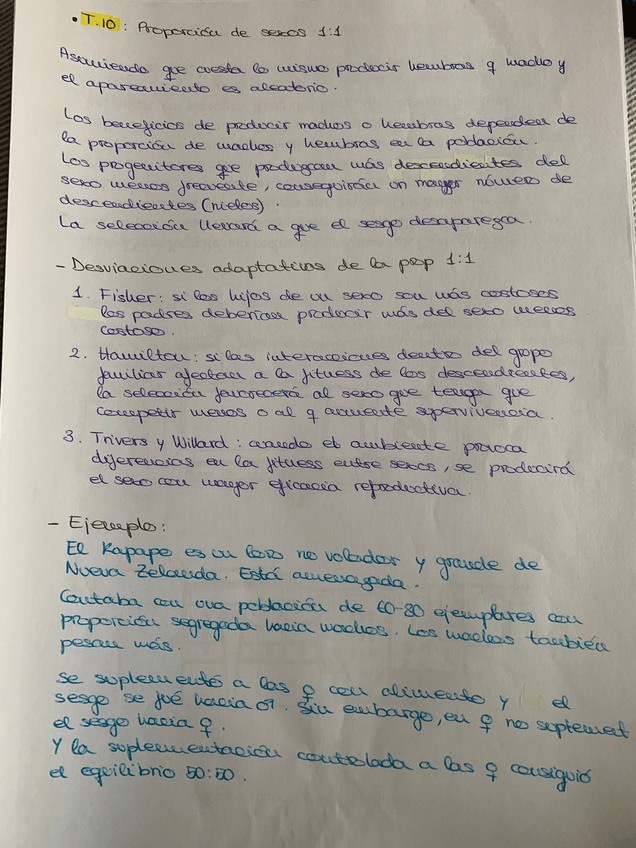 • T.10: Proporción de sexos 1:1
Asumiendo que cuesta lo mismo producir hembras q macho y
el apareamiento es aleatorio.
Los beneficios de producir machos o hembras dependen de
la proporción de machos y hembras en la población.
Los progenitores que produzcan más descendientes del
sexo menos frecuente, conseguirán un mayor número de
descendientes (nietos).
La selección llevará a que el sesgo desaparezca.
- Desviaciones adaptativas de la prop 1:1
1. Fisher: si los hijos de un sexo son más costosos
los padres deberían producir más del sexo menos
costoso.
2. Hamilton: si las interacciones dentro del grupo
familiar afectan a la fitness de los descendientes,
la selección favorecerá al sexo que tenga que
competir menos o al q aumente supervivencia.
3. Trivers y Willard: cuando el ambiente provoca
diferencias en la fitness entre sexos, se producirá
el sexo con mayor eficacia reproductiva.
- Ejemplo:
El Kapapo es un loro no volador y grande de
Nueva Zelanda. Está amenazada.
Contaba con una población de 60-80 ejemplares con
proporción segregada hacia machos. Los machos también
pesan más.
Se suplementó a las ♀ con alimento y el
sesgo se fué hacia ♂. Sin embargo, en ♀ no suplement
el sesgo hacia ♀.
Y la suplementación controlada a las ♀ consiguió
el equilibrio 50:50.